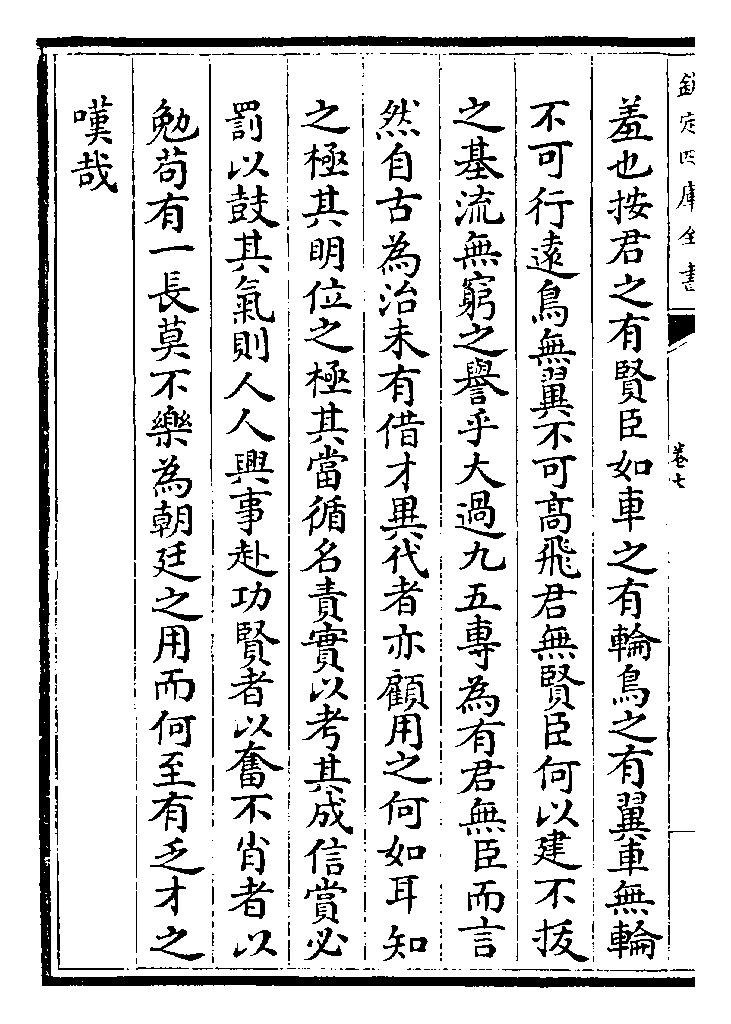 欽定四庫全書
卷七
羞也按君之有賢臣如車之有輪鳥之有翼車無輪
不可行遠鳥無翼不可高飛君無賢臣何以建不拔
之基流無窮之譽乎大過九五專為有君無臣而言
然自古為治未有借才異代者亦顧用之何如耳知
之極其明位之極其當循名責實以考其成信賞必
罰以鼓其氣則人人興事赴功賢者以奮不肖者以
勉茍有一長莫不樂為朝廷之用而何至有乏才之
嘆哉